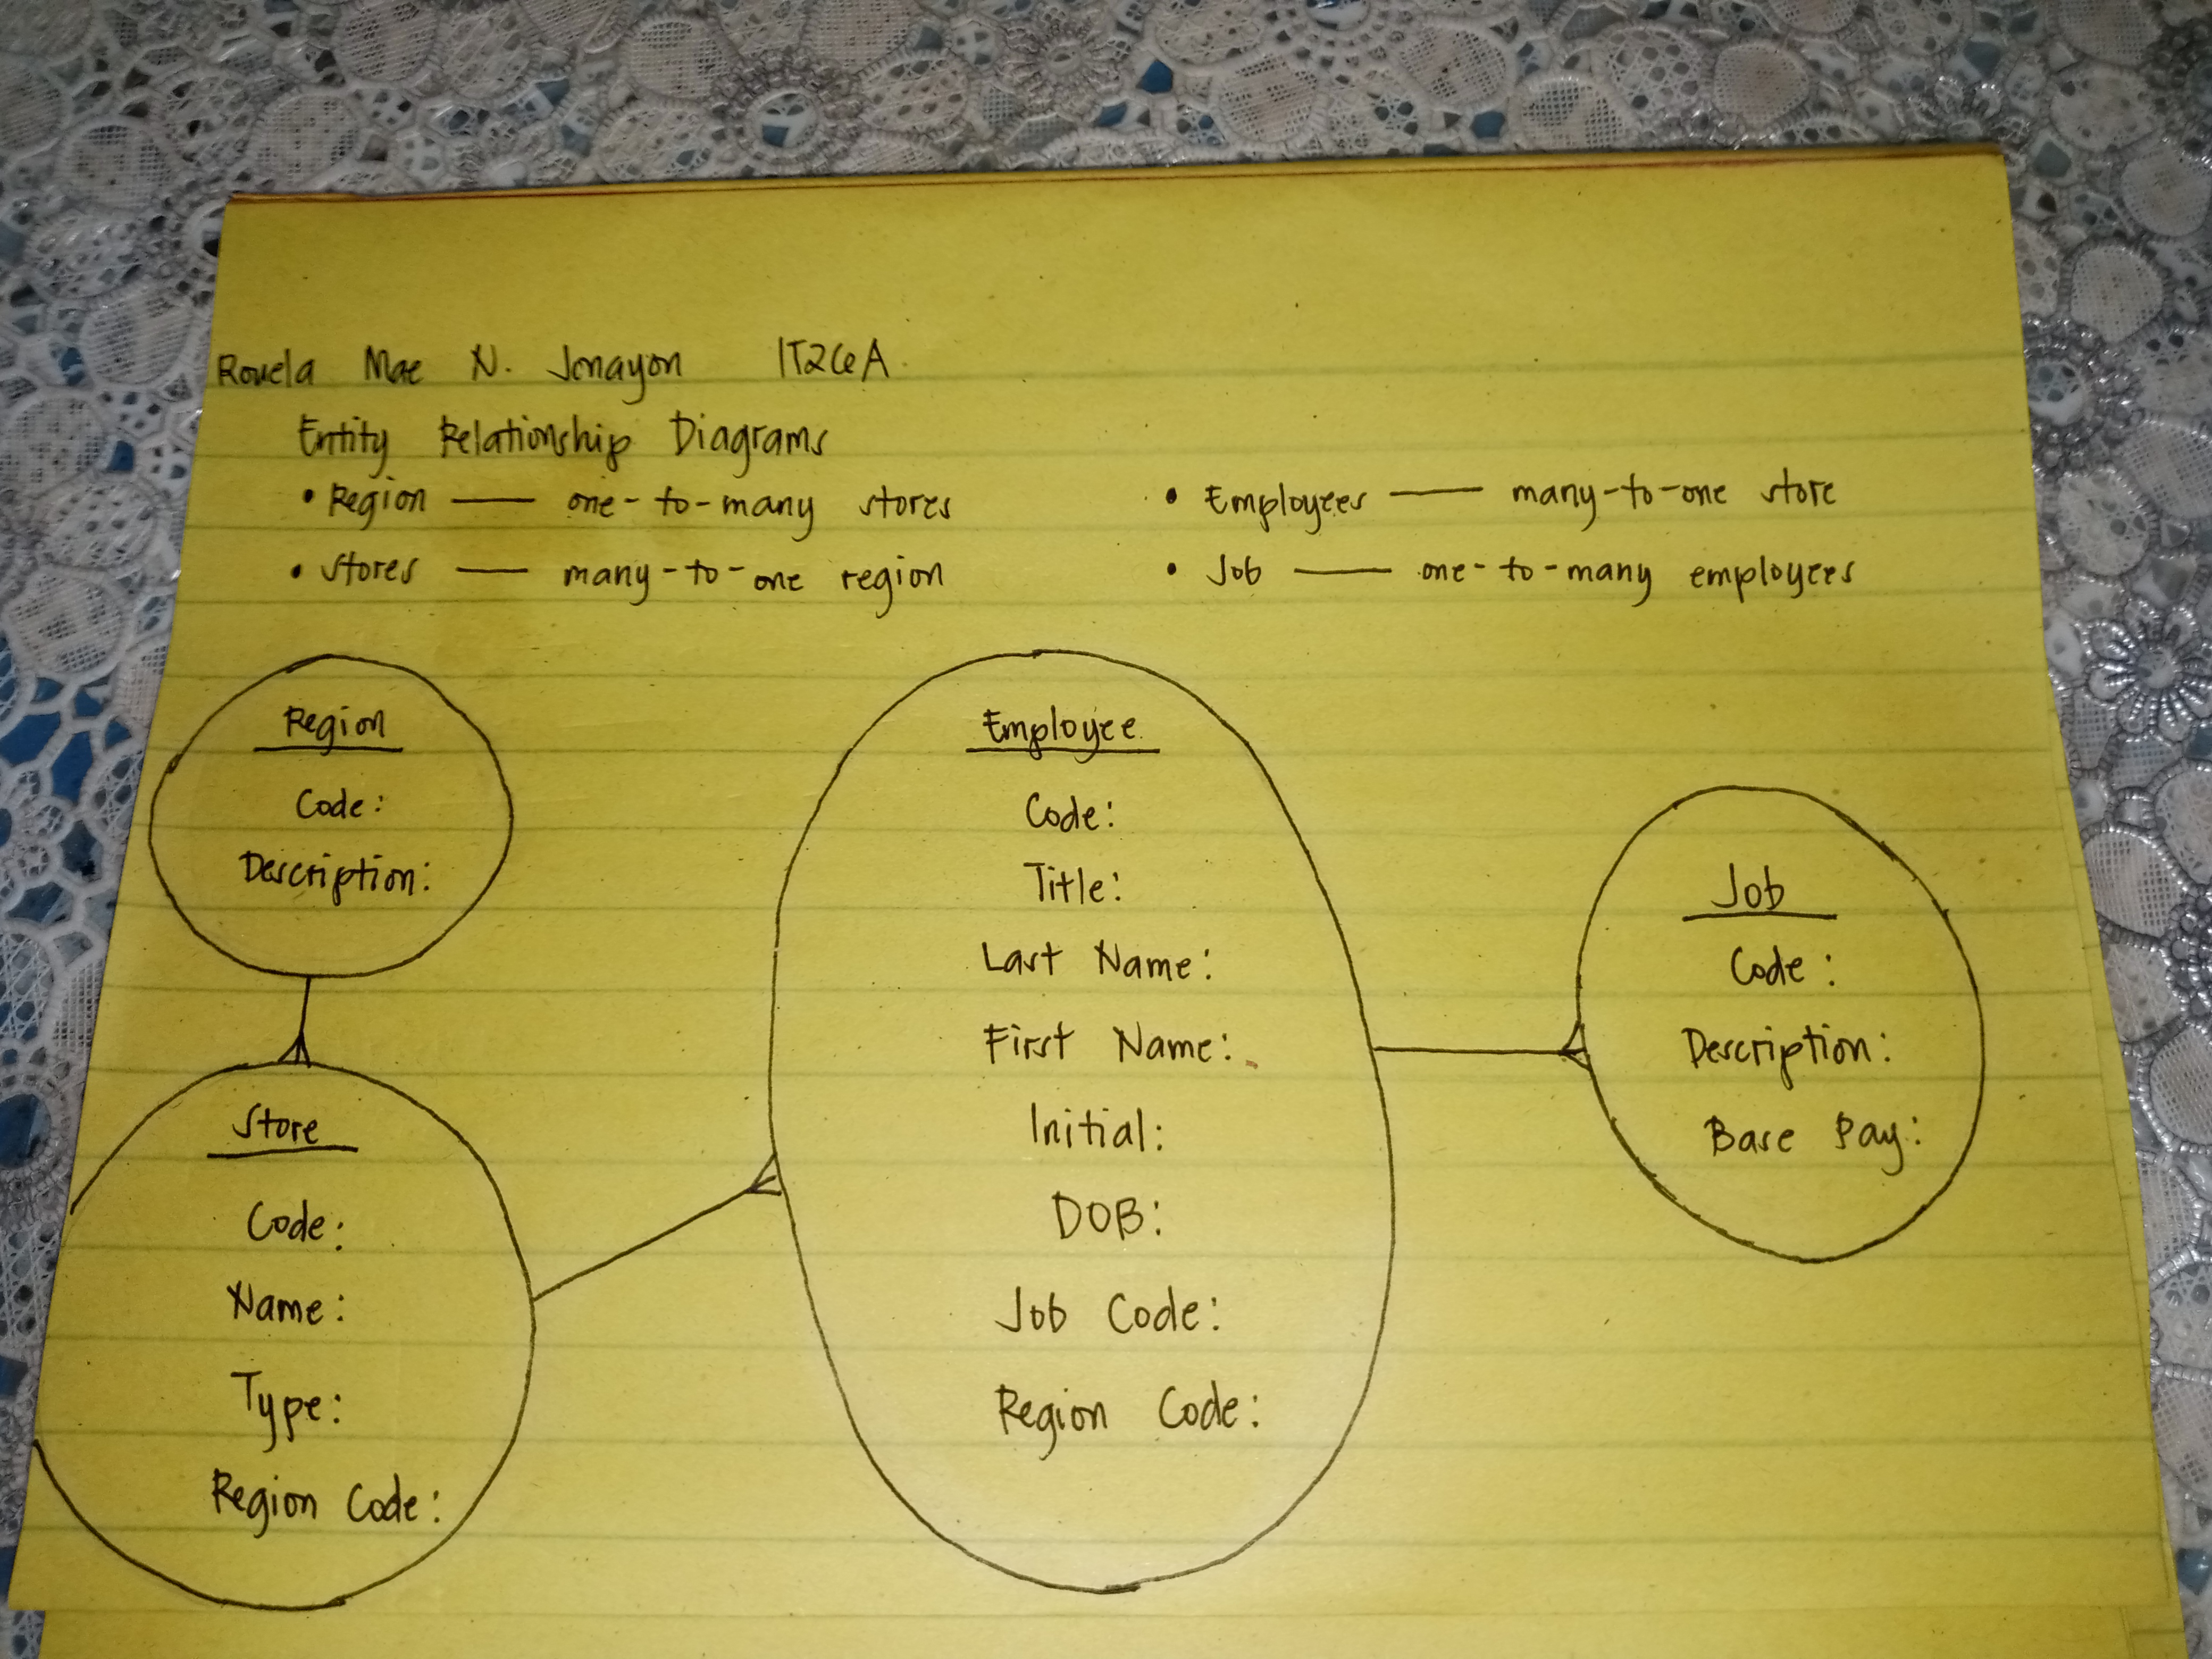 Rouela Mae N. Jonayon IT2GA
Entity Relationship Diagrams
• Region — one-to-many stores
• Stores — many-to-one region
• Employees — many-to-one store
• Job — one-to-many employees
Region
Code:
Description:
Store
Code:
Name:
Type:
Region Code:
Employee
Code:
Title:
Last Name:
First Name:
Initial:
DOB:
Job Code:
Region Code:
Job
Code:
Description:
Base Pay: